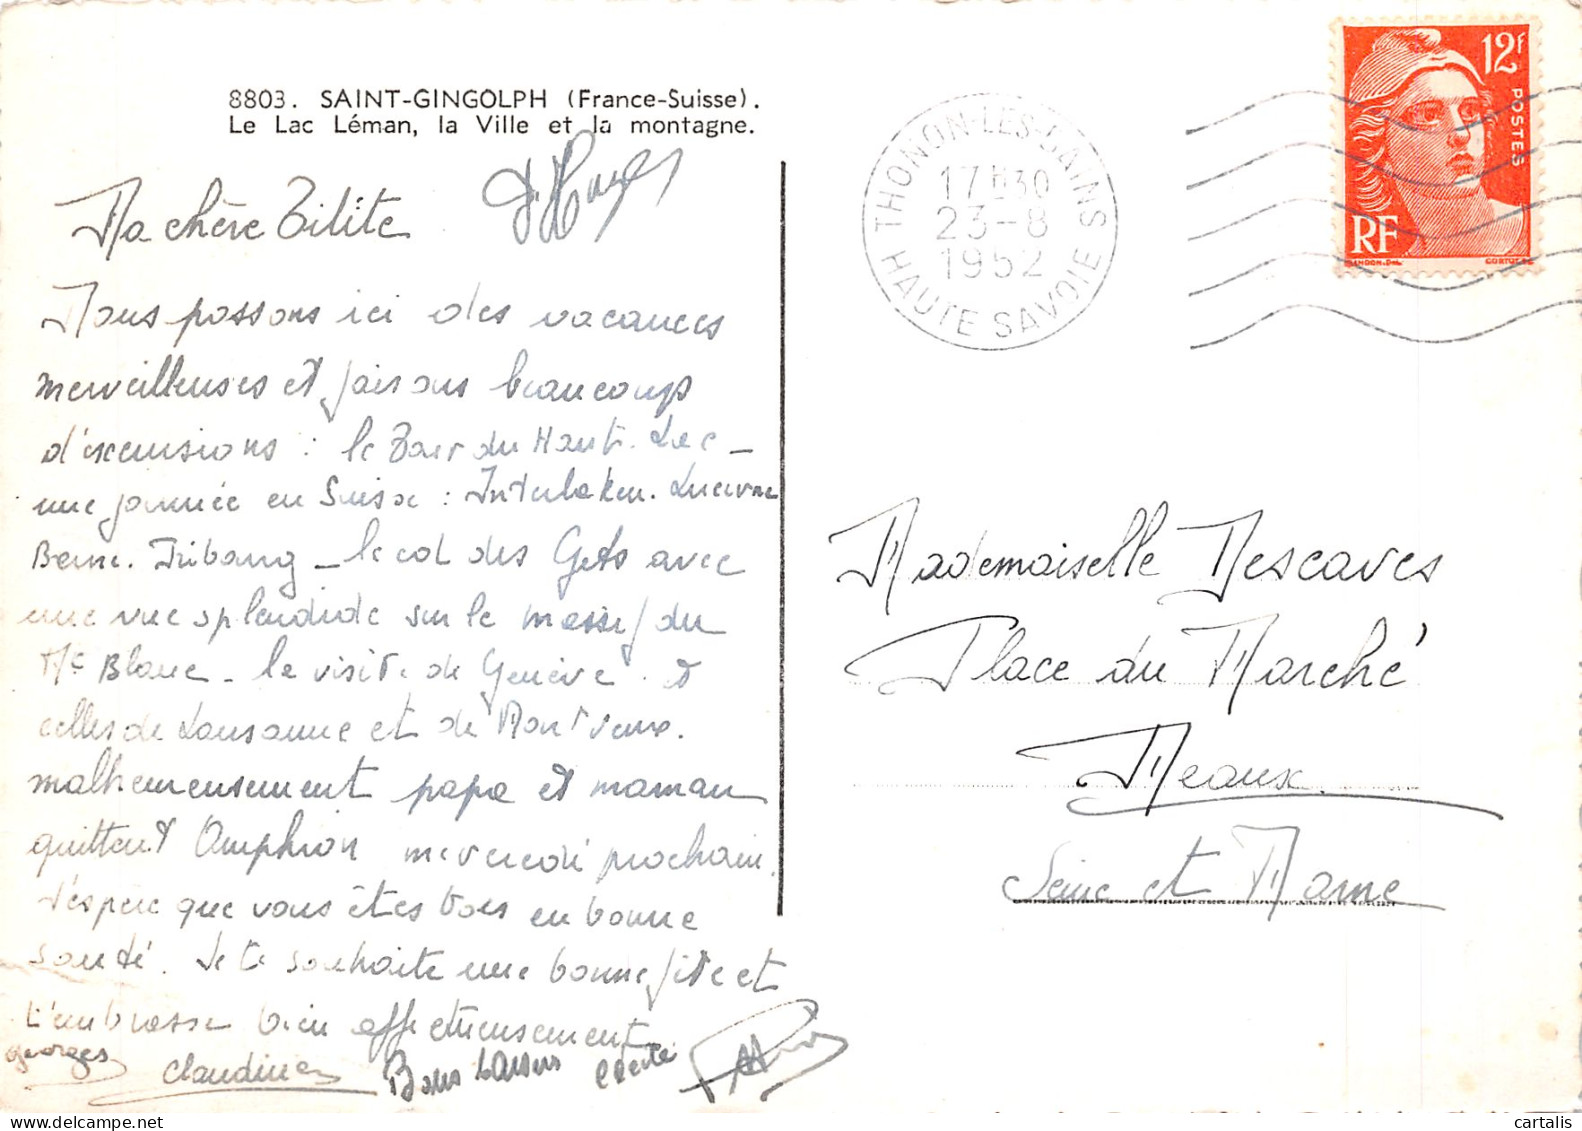 8803. SAINT-GINGOLPH (France-Suisse).
Le Lac Léman, la Ville et la montagne.
THONON-LES-BAINS
17H30
23-8
1952
HAUTE SAVOIE
12F
POSTES
RF
GANDON.Del.
CORTOT.SC
Ma chère Zilite
Nous passons ici des vacances
merveilleuses et faisons beaucoup
d'excursions : le Tour du Haut-Lac -
une journée en Suisse : Interlaken. Lucerne
Berne. Fribourg - le col des Gets avec
une vue splendide sur le massif du
Mt Blanc - la visite de Genève. et
celles de Lausanne et de Montreux.
malheureusement papa et maman
quittent Amphion mercredi prochain.
J'espère que vous êtes tous en bonne
santé. Je te souhaite une bonne fête et
t'embrasse bien affectueusement
georges
Claudine
Bons baisers
Mademoiselle Descaves
Place du Marché
Meaux
Seine et Marne
cartalis